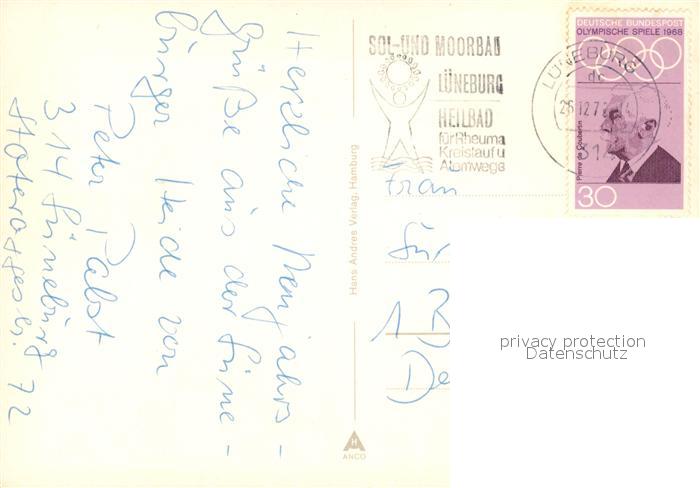 Herzliche Neujahrs-
grüße aus der Lüne-
burger Heide von
Peter Pabst
314 Lüneburg
72
Hans Andres Verlag, Hamburg
H
ANCO
SOL-UND MOORBAD
LÜNEBURG
HEILBAD
für Rheuma
Kreislauf u
Atemwege
LÜNEBURG
DEUTSCHE BUNDESPOST
OLYMPISCHE SPIELE 1968
Pierre de Coubertin
30
Frau
1 B
privacy protection
Datenschutz